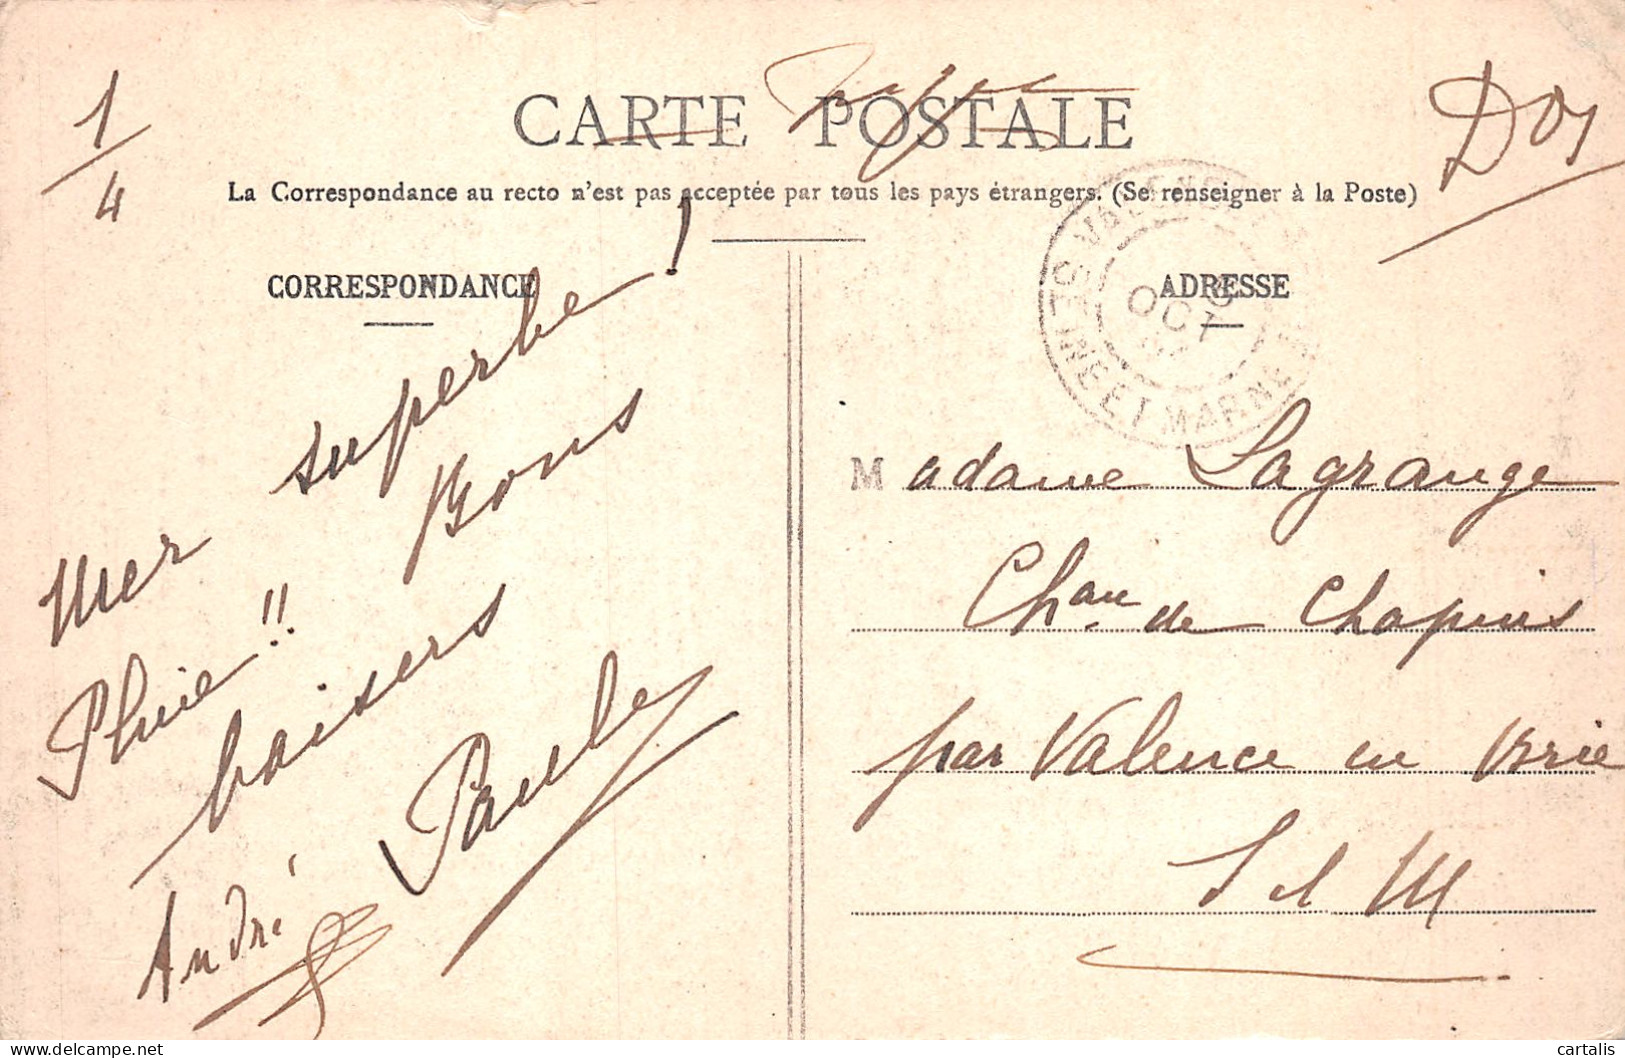 1/4
Dos
CARTE POSTALE
La Correspondance au recto n'est pas acceptée par tous les pays étrangers. (Se renseigner à la Poste)
CORRESPONDANCE
Mer superbe !
Pluie !! Bons
baisers
Pauley
André
ADRESSE
OCT
SEINE ET MARNE
Madame Lagrange
Chau. de Chapuis
par Valence en Brie
S et M
cartalis